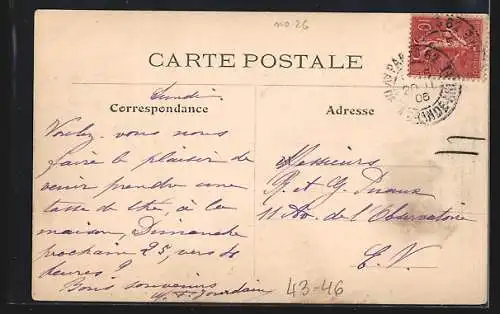 no. 26
CARTE POSTALE
Lundi
Correspondance
Adresse
Voulez-vous nous
faire le plaisir de
venir prendre une
tasse de thé, à la
maison, Dimanche
prochain 25, vers 4
heures ?
Bons souvenirs
Jourdain
Messieurs
P. et G.
11 Av. de l'Observatoire
E. V.
43-46
PARIS
06